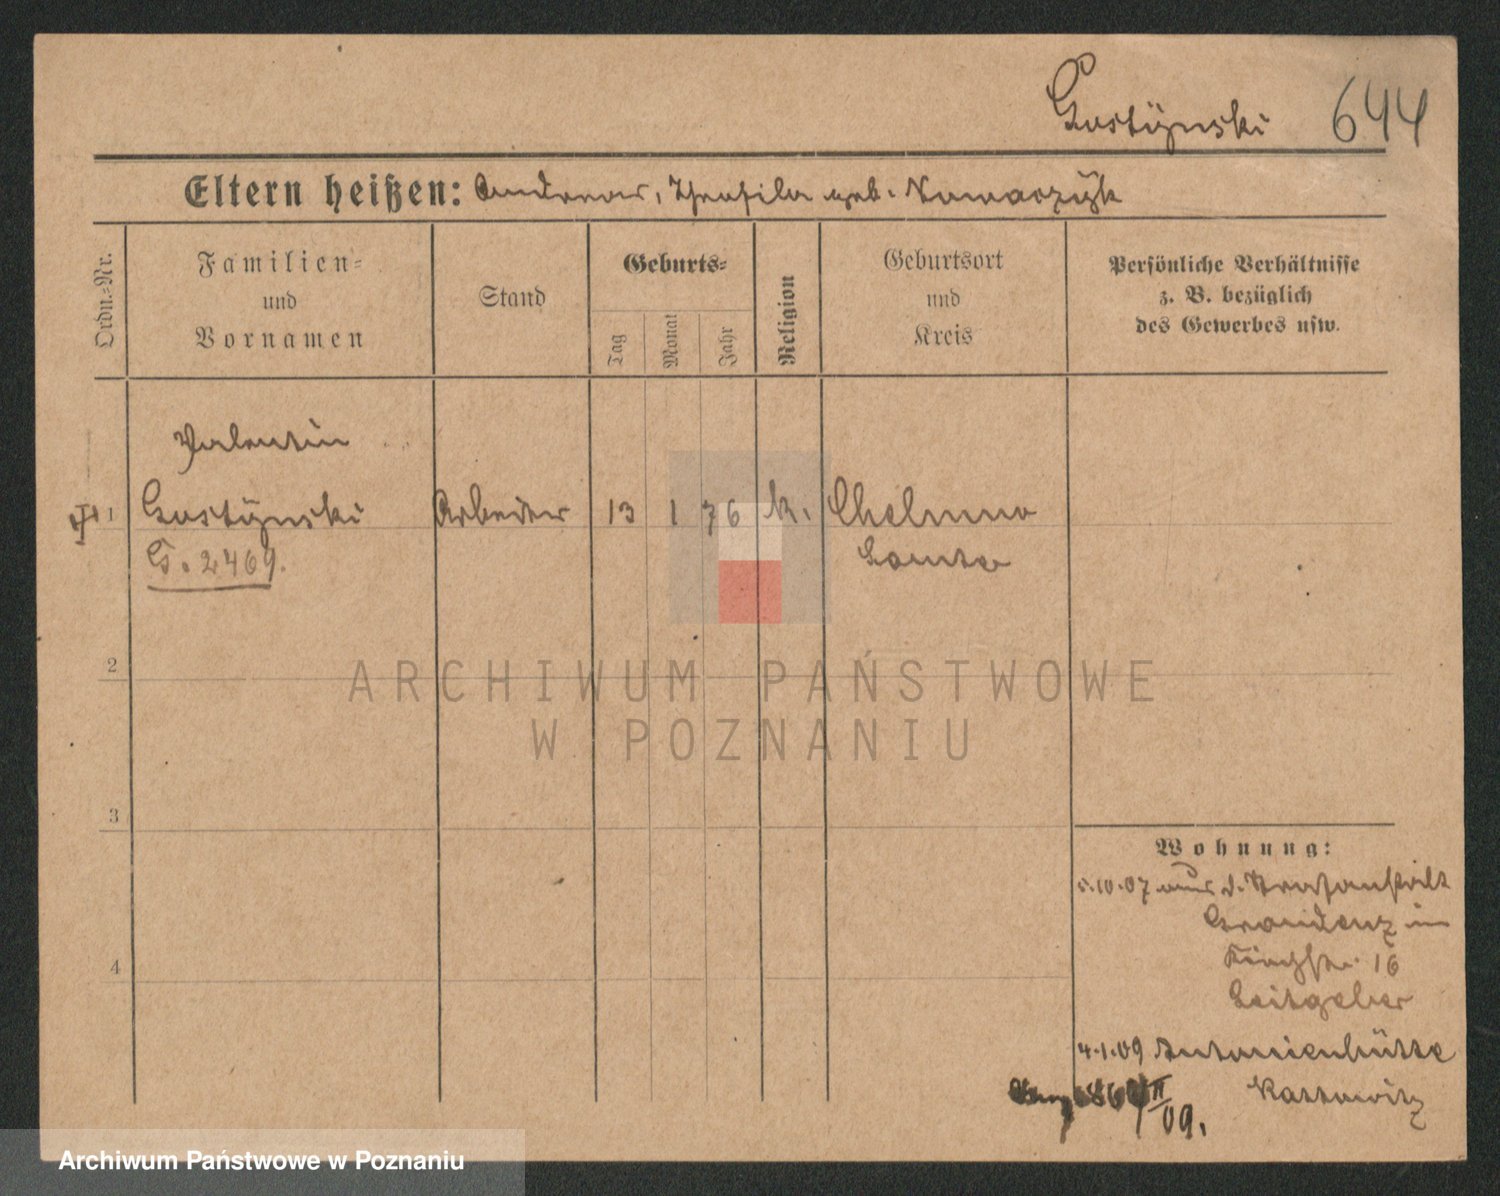 Gostÿnski 644
Eltern heißen: Andreas, Theofila geb. Nowaczÿk
Ordn.-Nr.
Familien-
und
Vornamen
Stand
Geburts-
Tag
Monat
Jahr
Religion
Geburtsort
und
Kreis
Persönliche Verhältnisse
z. B. bezüglich
des Gewerbes usw.
Valentin
1 Gostÿnski Arbeiter 13 1 76 k. Chelmno
G. 2469. Samter
2
ARCHIWUM PAŃSTWOWE
W POZNANIU
3
Wohnung:
10.07 aus d. Strafanstalt
Graudenz in
Kirchstr. 16
Leitgeber
4
4.1.09 Antonienhütte
Kattowitz
II
09.
Archiwum Państwowe w Poznaniu